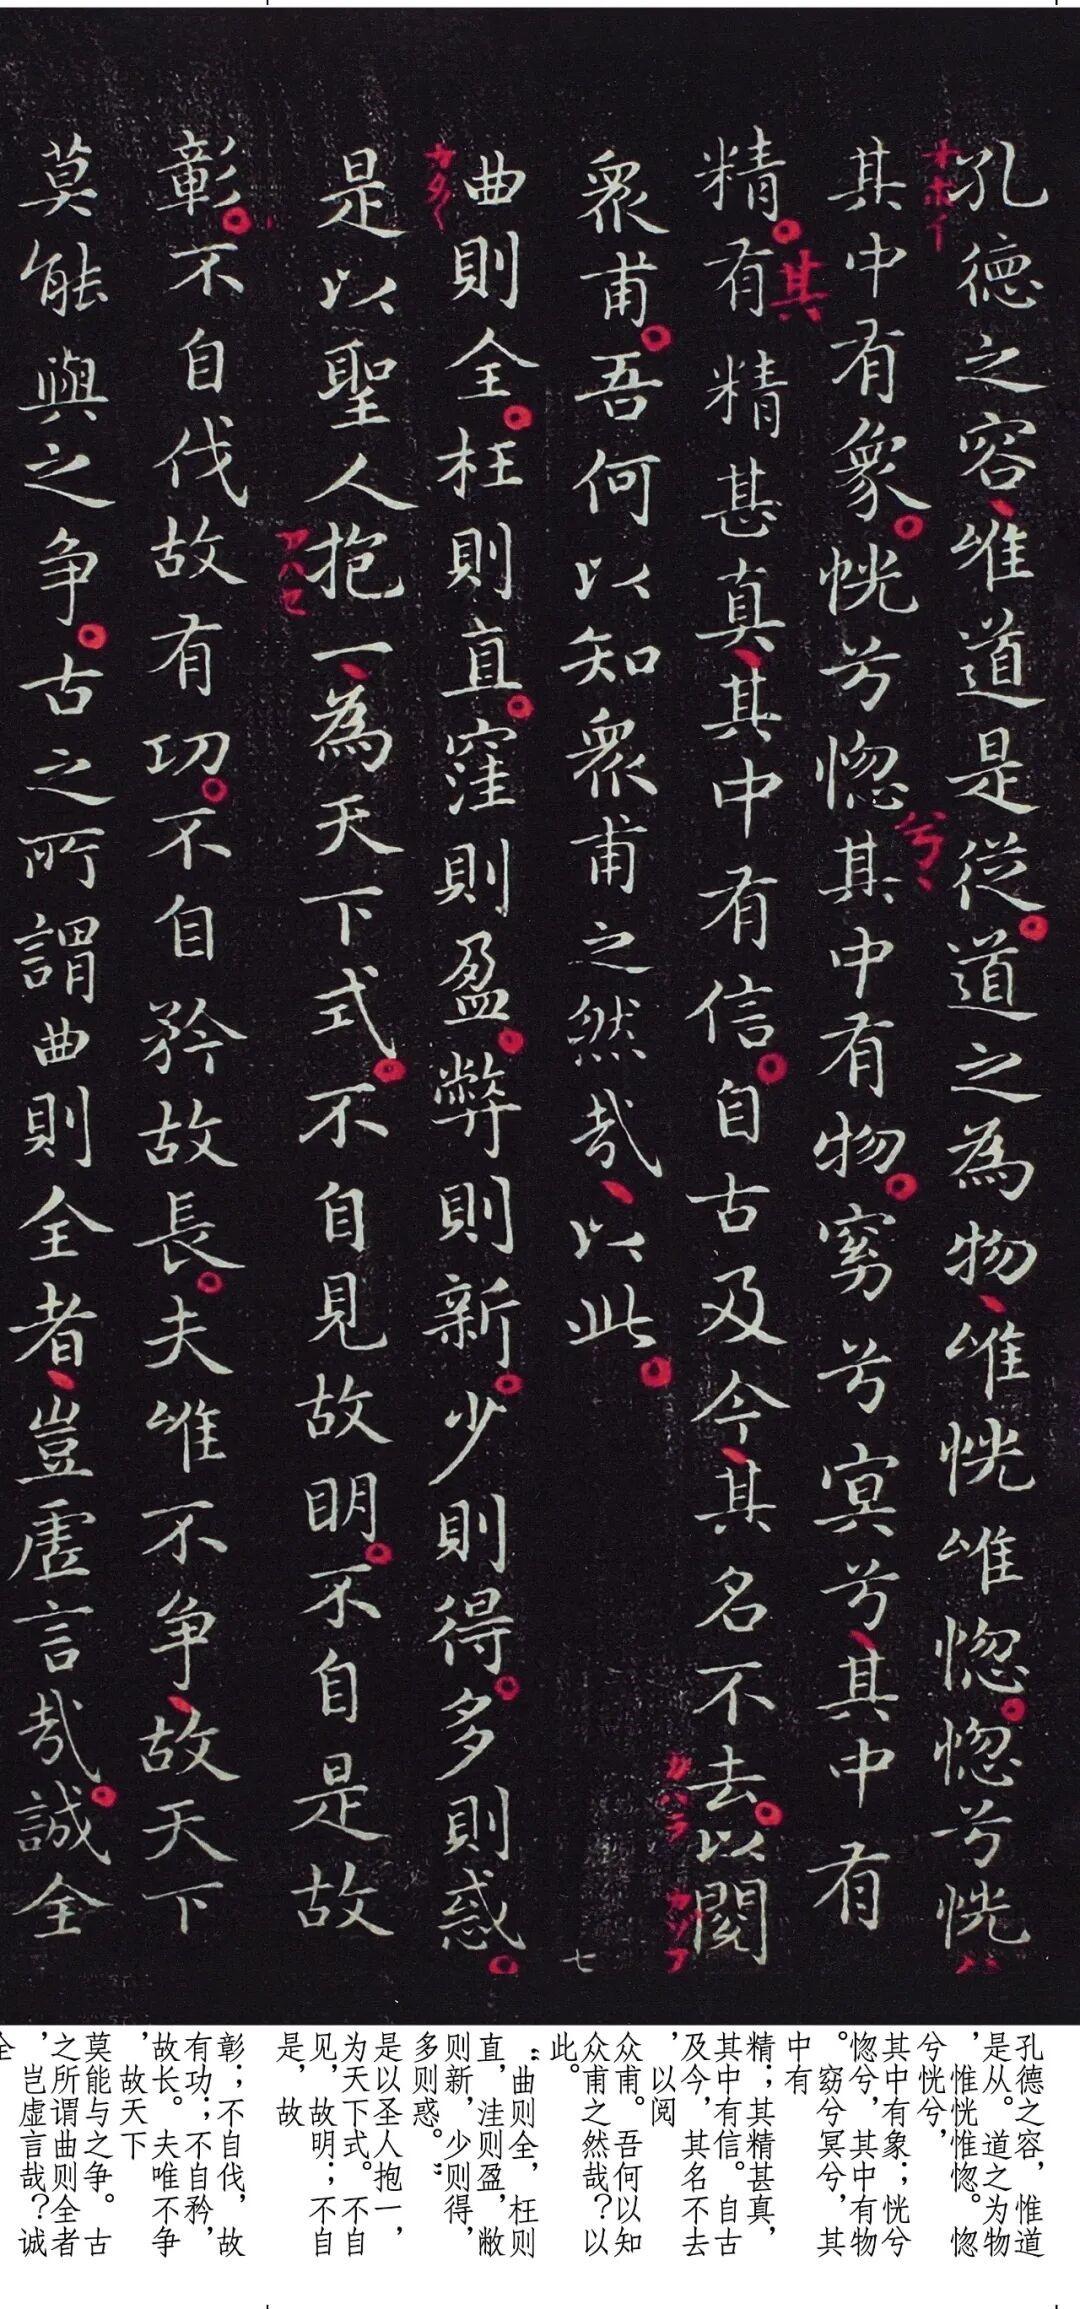 孔德之容、唯道是從。道之為物、唯恍唯惚。惚兮恍
オホイ
其中有象。恍兮惚其中有物。窈兮冥兮、其中有
兮、
精。有精甚真、其中有信。自古及今、其名不去。以閱
其
衆甫。吾何以知衆甫之然哉、以此。
七
曲則全。枉則直。窪則盈。弊則新。少則得。多則惑。
是以聖人抱一、為天下式。不自見故明。不自是故
アハセ
彰。不自伐故有功。不自矜故長。夫唯不争、故天下
莫能與之争。古之所謂曲則全者、豈虛言哉。誠全
孔德之容，惟道
是从。道之为物
，惟恍惟惚。惚
兮恍兮，
其中有象；恍兮
惚兮，其中有物
。窈兮冥兮，其
中有
精；其精甚真，
其中有信。自古
及今，其名不去
，以阅
众甫。吾何以知
众甫之然哉？以
此。
“曲则全，枉则
直，洼则盈，敝
则新，少则得，
多则惑。”
是以圣人抱一，
为天下式。不自
见，故明；不自
是，故
彰；不自伐，故
有功；不自矜，
故长。夫唯不争
，故天下
莫能与之争。古
之所谓曲则全者
，岂虚言哉？诚
全